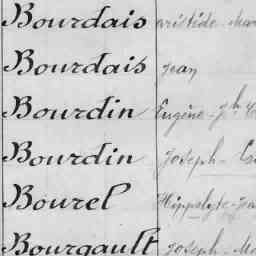 Bourdais aristide
Bourdais Jean
Bourdin Eugène-Jh
Bourdin Joseph
Bourel Hippolyte
Bourgault Joseph